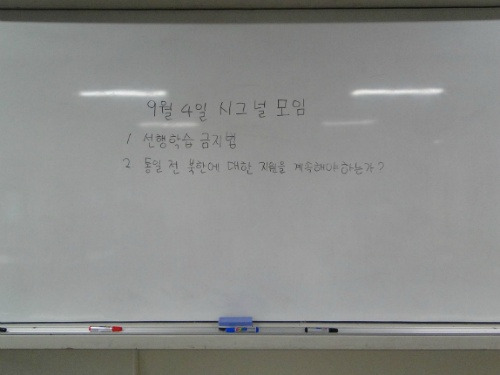 9월 4일 시그널 모임
1 선행학습 금지법
2 통일 전 북한에 대한 지원을 계속해야하는가?